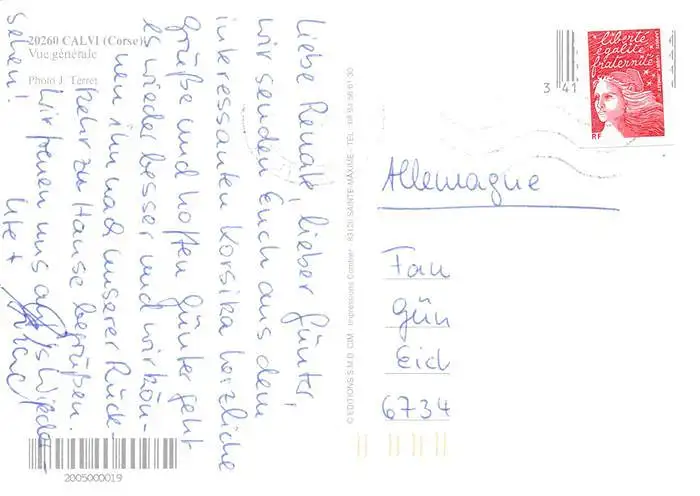 20260 CALVI (Corse)
Vue générale
Photo J. Terret
Liebe Renate, lieber Günter,
wir senden Euch aus dem
interessanten Korsika herzliche
Grüße und hoffen Günter geht
es wieder besser und wir kön-
nen ihn nach unserer Rück-
kehr zu Hause begrüßen.
Wir freuen uns aufs Wieder
sehen!
Ute +
2005000019
© EDITIONS S.M.D. CIM / Impressions Combier - 83120 SAINTE-MAXIME - TEL.
3 41
liberté
égalité
fraternité
RF
Allemagne
Fam
Gün
Eich
6734